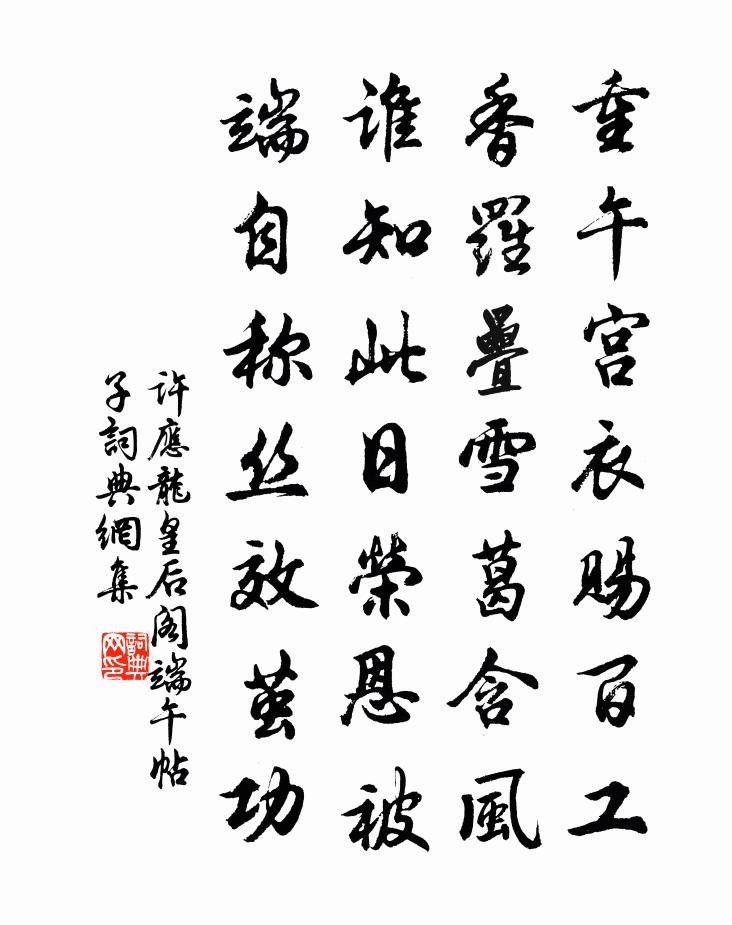 重午宫衣赐百工
香羅疊雪葛含風
誰知此日榮恩被
端自称丝效茧功
许應龍皇后阁端午帖
子詞典網集
詞典
网印